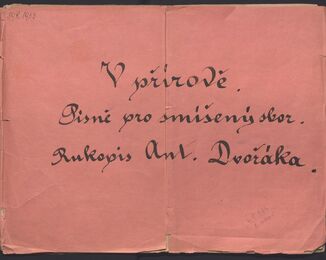 V přírodě.
Písně pro smíšený sbor.
Rukopis Ant. Dvořáka.